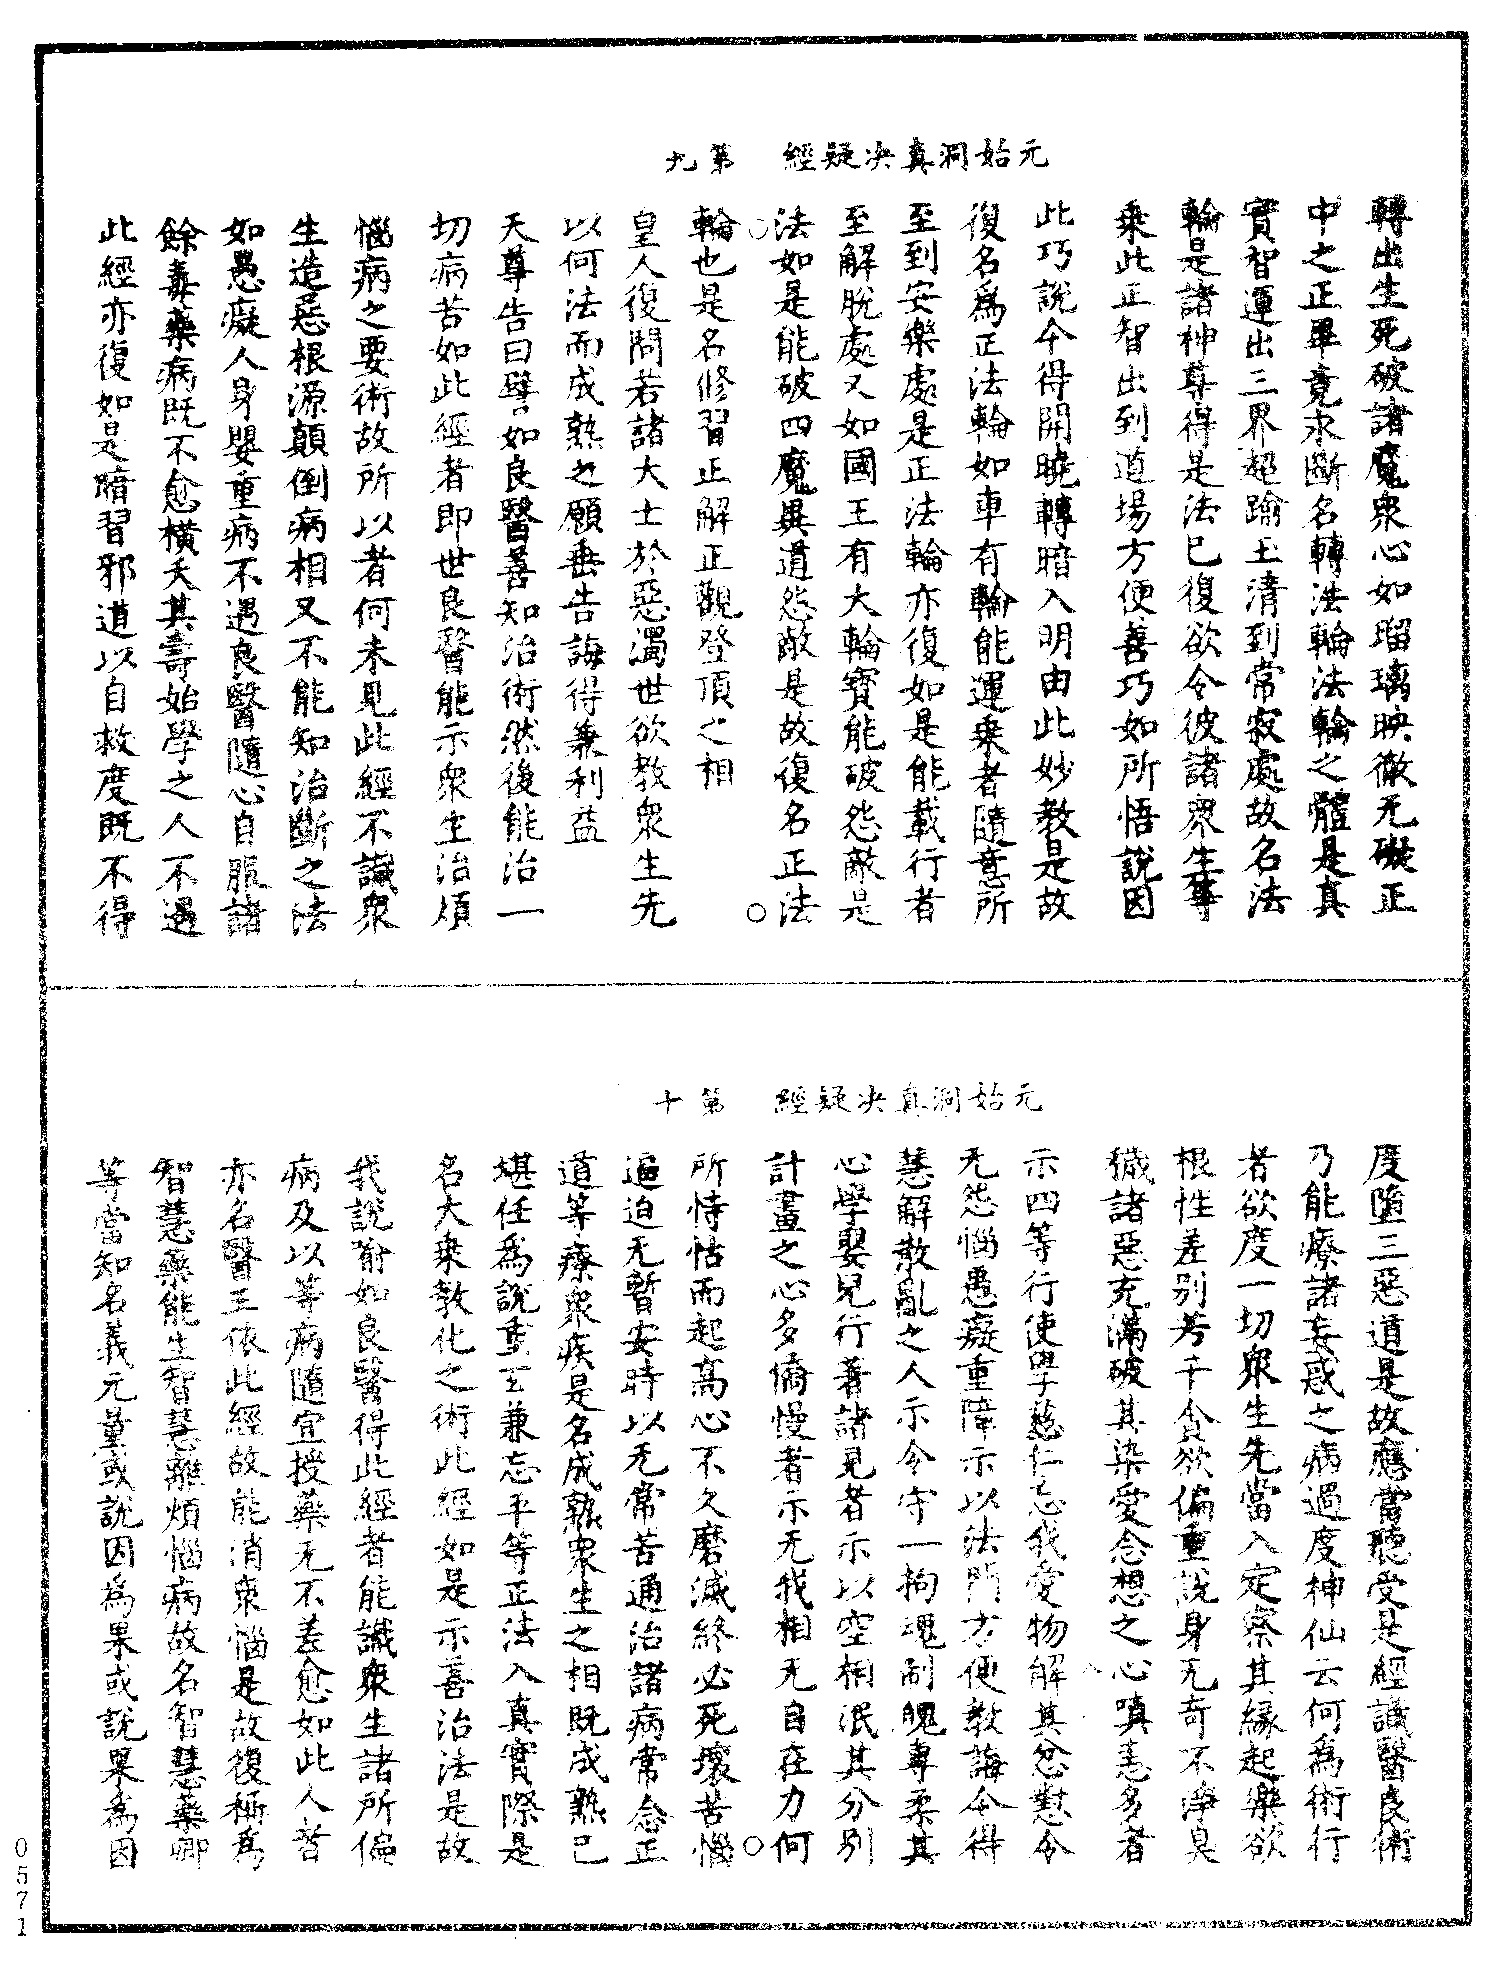 元始洞真决疑經　第九
轉出生死破諸魔衆心如瑠璃映徹无礙正
中之正畢竟永斷名轉法輪法輪之體是真
實智運出三界超踰玉清到常寂處故名法
輪是諸神尊得是法已復欲令彼諸衆生等
乘此正智出到道場方便善巧如所悟說因
此巧說令得開曉轉暗入明由此妙教是故
復名爲正法輪如車有輪能運乘者隨意所
至到安樂處是正法輪亦復如是能載行者
至解脫處又如國王有大輪寶能破怨敵是
法如是能破四魔異道怨敵是故復名正法
輪也是名修習正解正觀登頂之相
皇人復問若諸大士於惡濁世欲教衆生先
以何法而成熟之願垂告誨得兼利益
天尊告曰譬如良醫善知治術然後能治一
切病苦如此經者即世良醫能示衆生治煩
惱病之要術故所以者何未見此經不識衆
生造惡根源顛倒病相又不能知治斷之法
如愚癡人身嬰重病不遇良醫隨心自服諸
餘毒藥病既不愈橫夭其壽始學之人不遇
此經亦復如是暗習邪道以自救度既不得
元始洞真决疑經　第十
度墮三惡道是故應當聽受是經識醫良術
乃能療諸妄惑之病過度神仙云何爲術行
者欲度一切衆生先當入定察其緣起樂欲
根性差别若干貪欲偏重說身无奇不淨臭
穢諸惡充滿破其染愛念想之心嗔恚多者
示四等行使學慈仁忘我愛物解其忿懟令
无怨惱愚癡重障示以法門方便教誨令得
慧解散亂之人示令守一拘魂制魄專柔其
心學嬰兒行著諸見者示以空相泯其分别
計畫之心多憍慢者示无我相无自在力何
所恃怙而起高心不久磨滅終必死壞苦惱
逼迫无暫安時以无常苦通治諸病常念正
道等療衆疾是名成熟衆生之相既成熟已
堪任爲說重玄兼忘平等正法入真實際是
名大乘教化之術此經如是示善治法是故
我說喻如良醫得此經者能識衆生諸所偏
病及以等病隨宜授藥无不差愈如此人者
亦名醫王依此經故能消衆惱是故復稱爲
智慧藥能生智慧離煩惱病故名智慧藥卿
等當知名義无量或說因爲果或說果爲因
0571